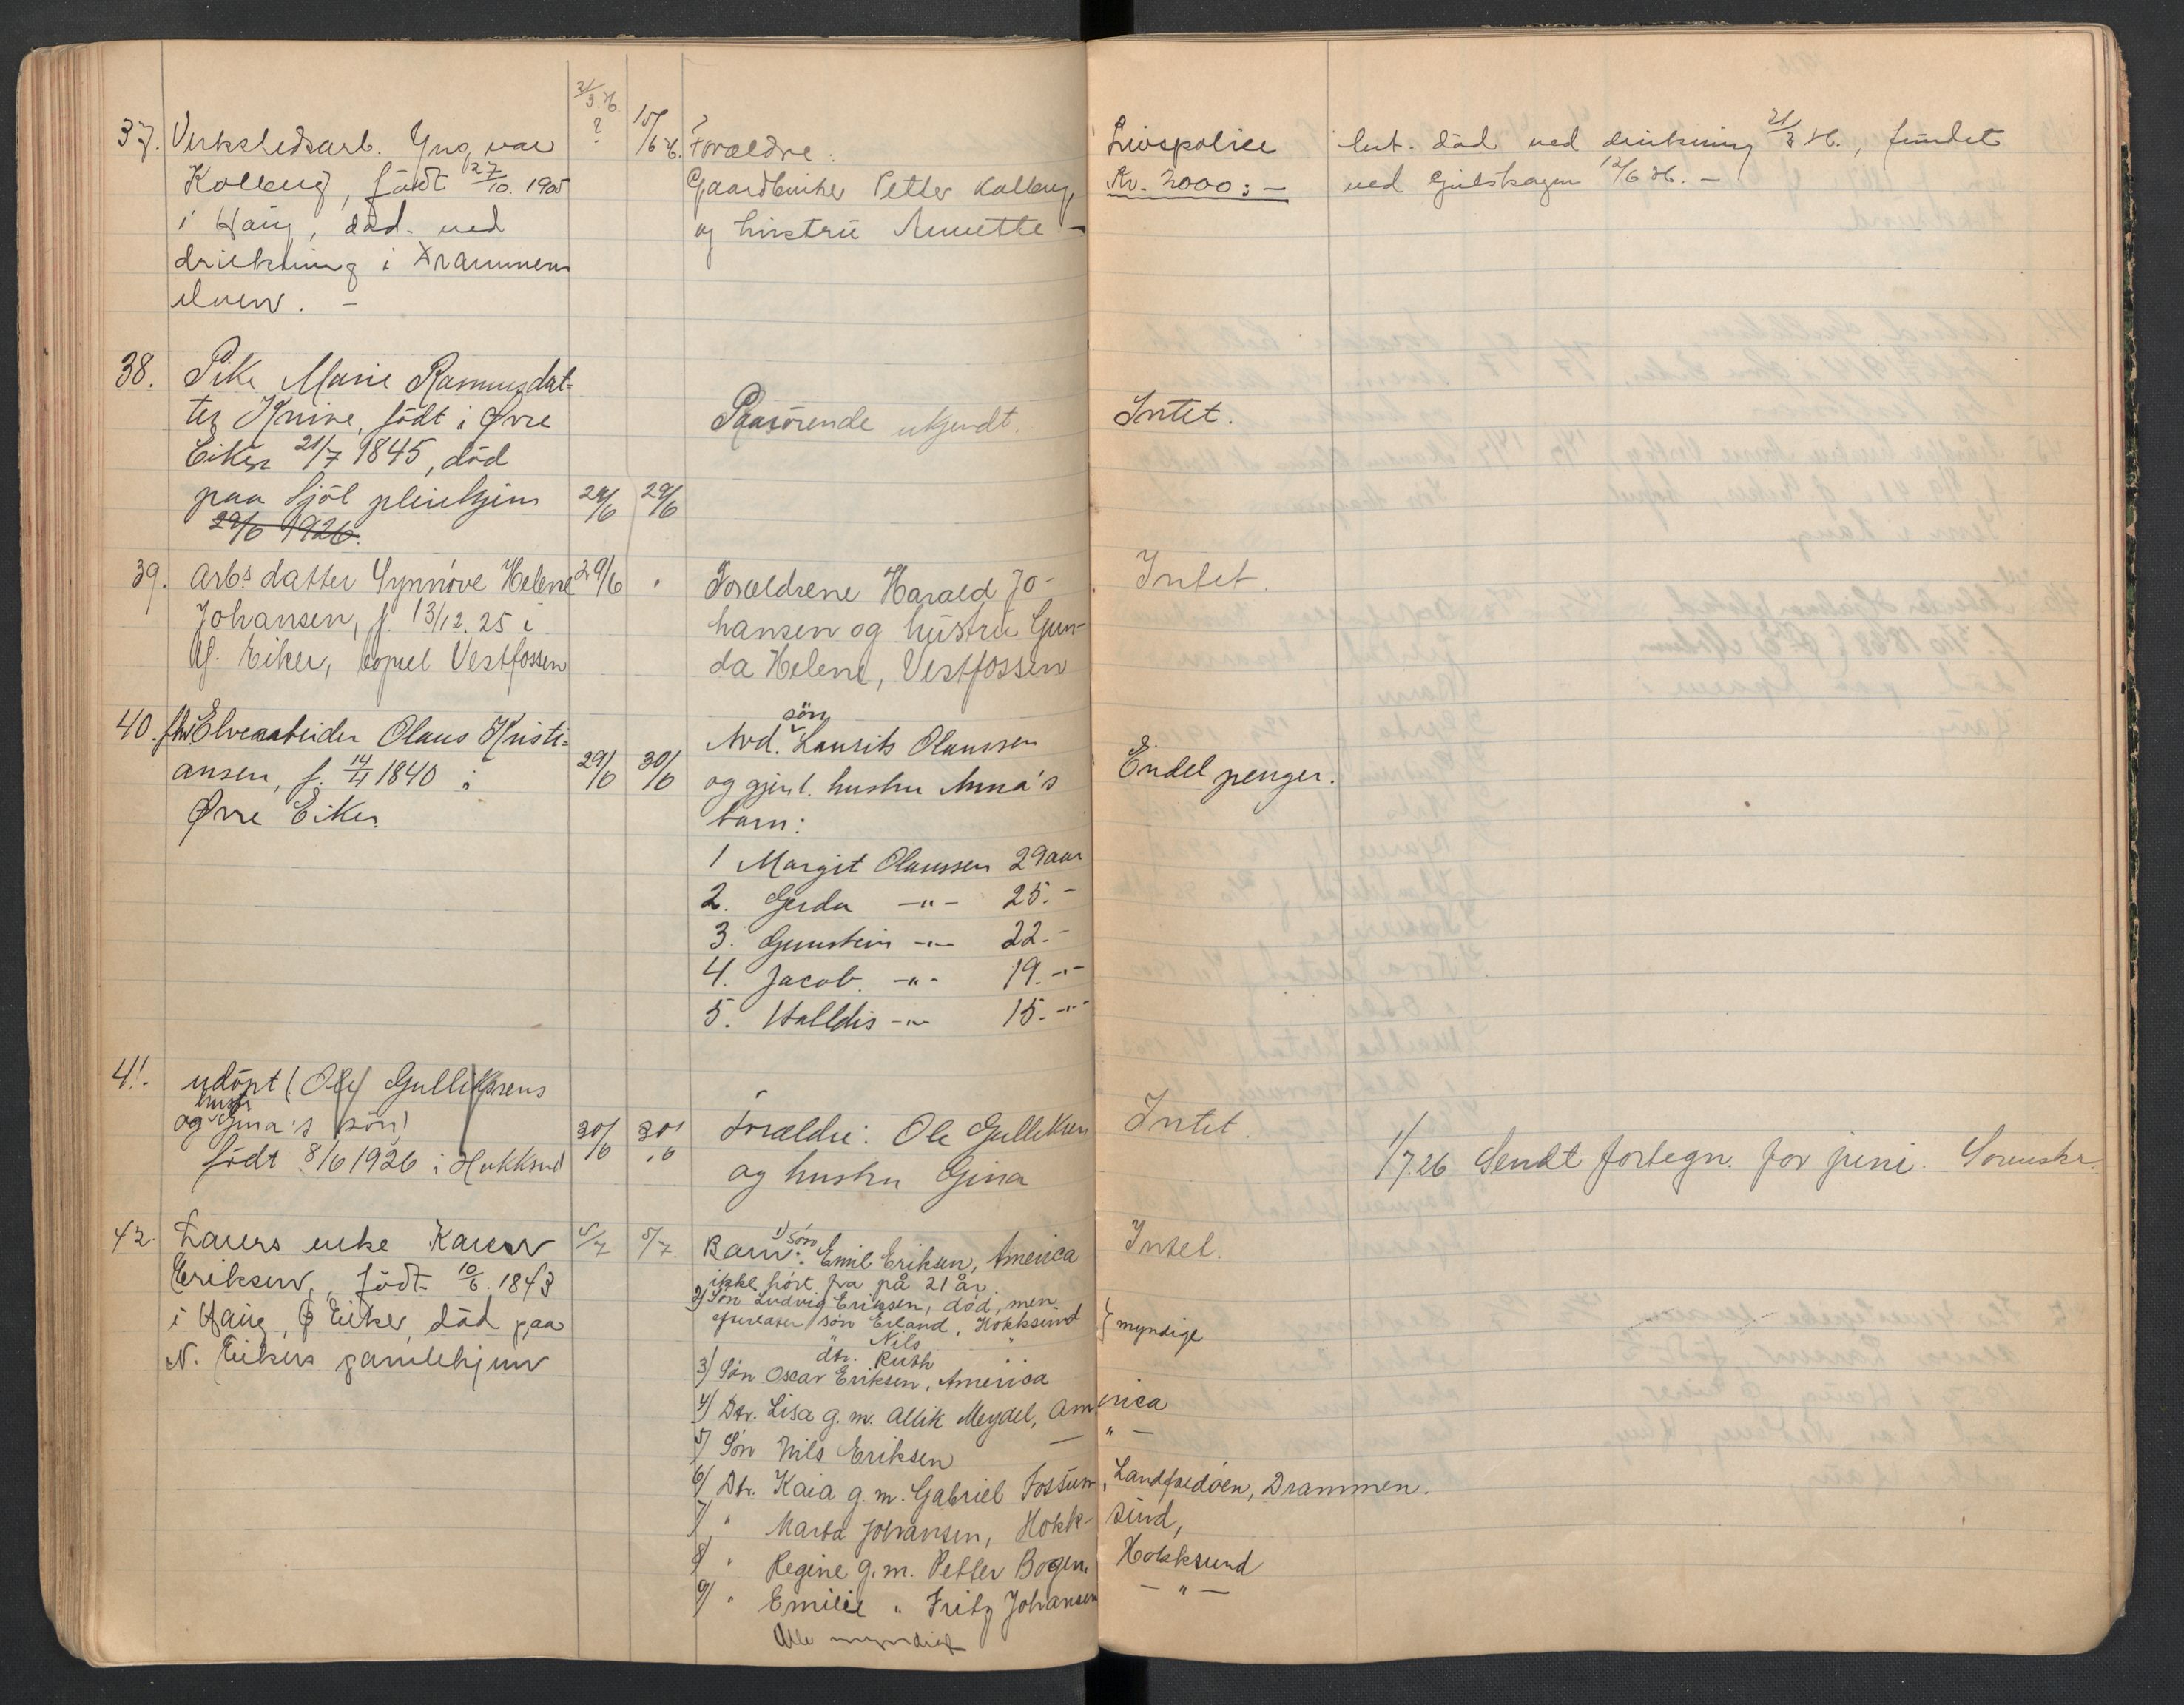 37. Verkstedsarb. Yngvar
Kolberg, født 27/10. 1905
i Haug, død ved
drukning i Drammens
elven. –
21/3.26.
?
15/6 26.
?
Forældre:
Gaardbruker Petter Kolberg,
og hustru Anette. –
Livspolice
Kr. 2000: –
død ved drukning 21/3 26., fundet
ved Gulskogen 12/6 26. –
38. Pike Marie Rasmusdat-
ter Knive, født i Øvre
Eiker 21/7 1845, død
paa Hjøl pleiehjem
29/6 1926.
24/6
29/6
Paarørende ukjendt.
Intet.
39. Arbs datter Synnøve Helene
Johansen, f. 13/12. 25 i
Ø. Eiker, bopæl Vestfossen
29/6
Forældrene Harald Jo-
hansen og hustru Gun-
da Helene, Vestfossen
Intet.
40. fhv. Elvearbeider Olaus Kristi-
ansen, f. 14/4 1840 i
Øvre Eiker
29/6
30/6
søn
Avd. Laurits Olaussen
og gjenl. hustru Anna's
barn:
1 Margit Olaussen 29 aar
2. Gerda –"– 25. –
3. Gunstein –"– 22. –
4. Jacob. –"– 19. –"–
5. Halldis –"– 15. –"–
Endel penger.
41. udøpt (Ole Gulliksens
hustr
og Gina's søn)
født 8/6 1926 i Hokksund
30/6
30/6
Forældre: Ole Gulliksen
og hustru Gina
Intet.
1/7.26 Sendt fortegn. for juni. Sorenskr.
42. Lauers enke Karen
Eriksen, født 10/6. 1843
i Haug, Ø Eiker, død paa
N. Eikers gamlehjem
5/7
5/7.
1) søn
Barn: Emil Eriksen, America
ikke hørt fra på 21 år.
2) Søn Ludvig Eriksen, død, men
efterlater søn Erland, Hokksund
" Nils "
dtr. Ruth "
} myndige
3) Søn Oscar Eriksen, America
4) Dtr. Lisa g. m. Allik Meydel, America
5) Søn Nils Eriksen — " —
6) Dtr. Kaia g. m. Gabriel Fossum, Landfaldøen, Drammen.
7) " Marta Johansen, Hokk-sund,
8) " Regine g. m. Petter Bogen, Hokksund
9) " Emilie " Fritz Johansen — " —
Alle myndige
Intet.